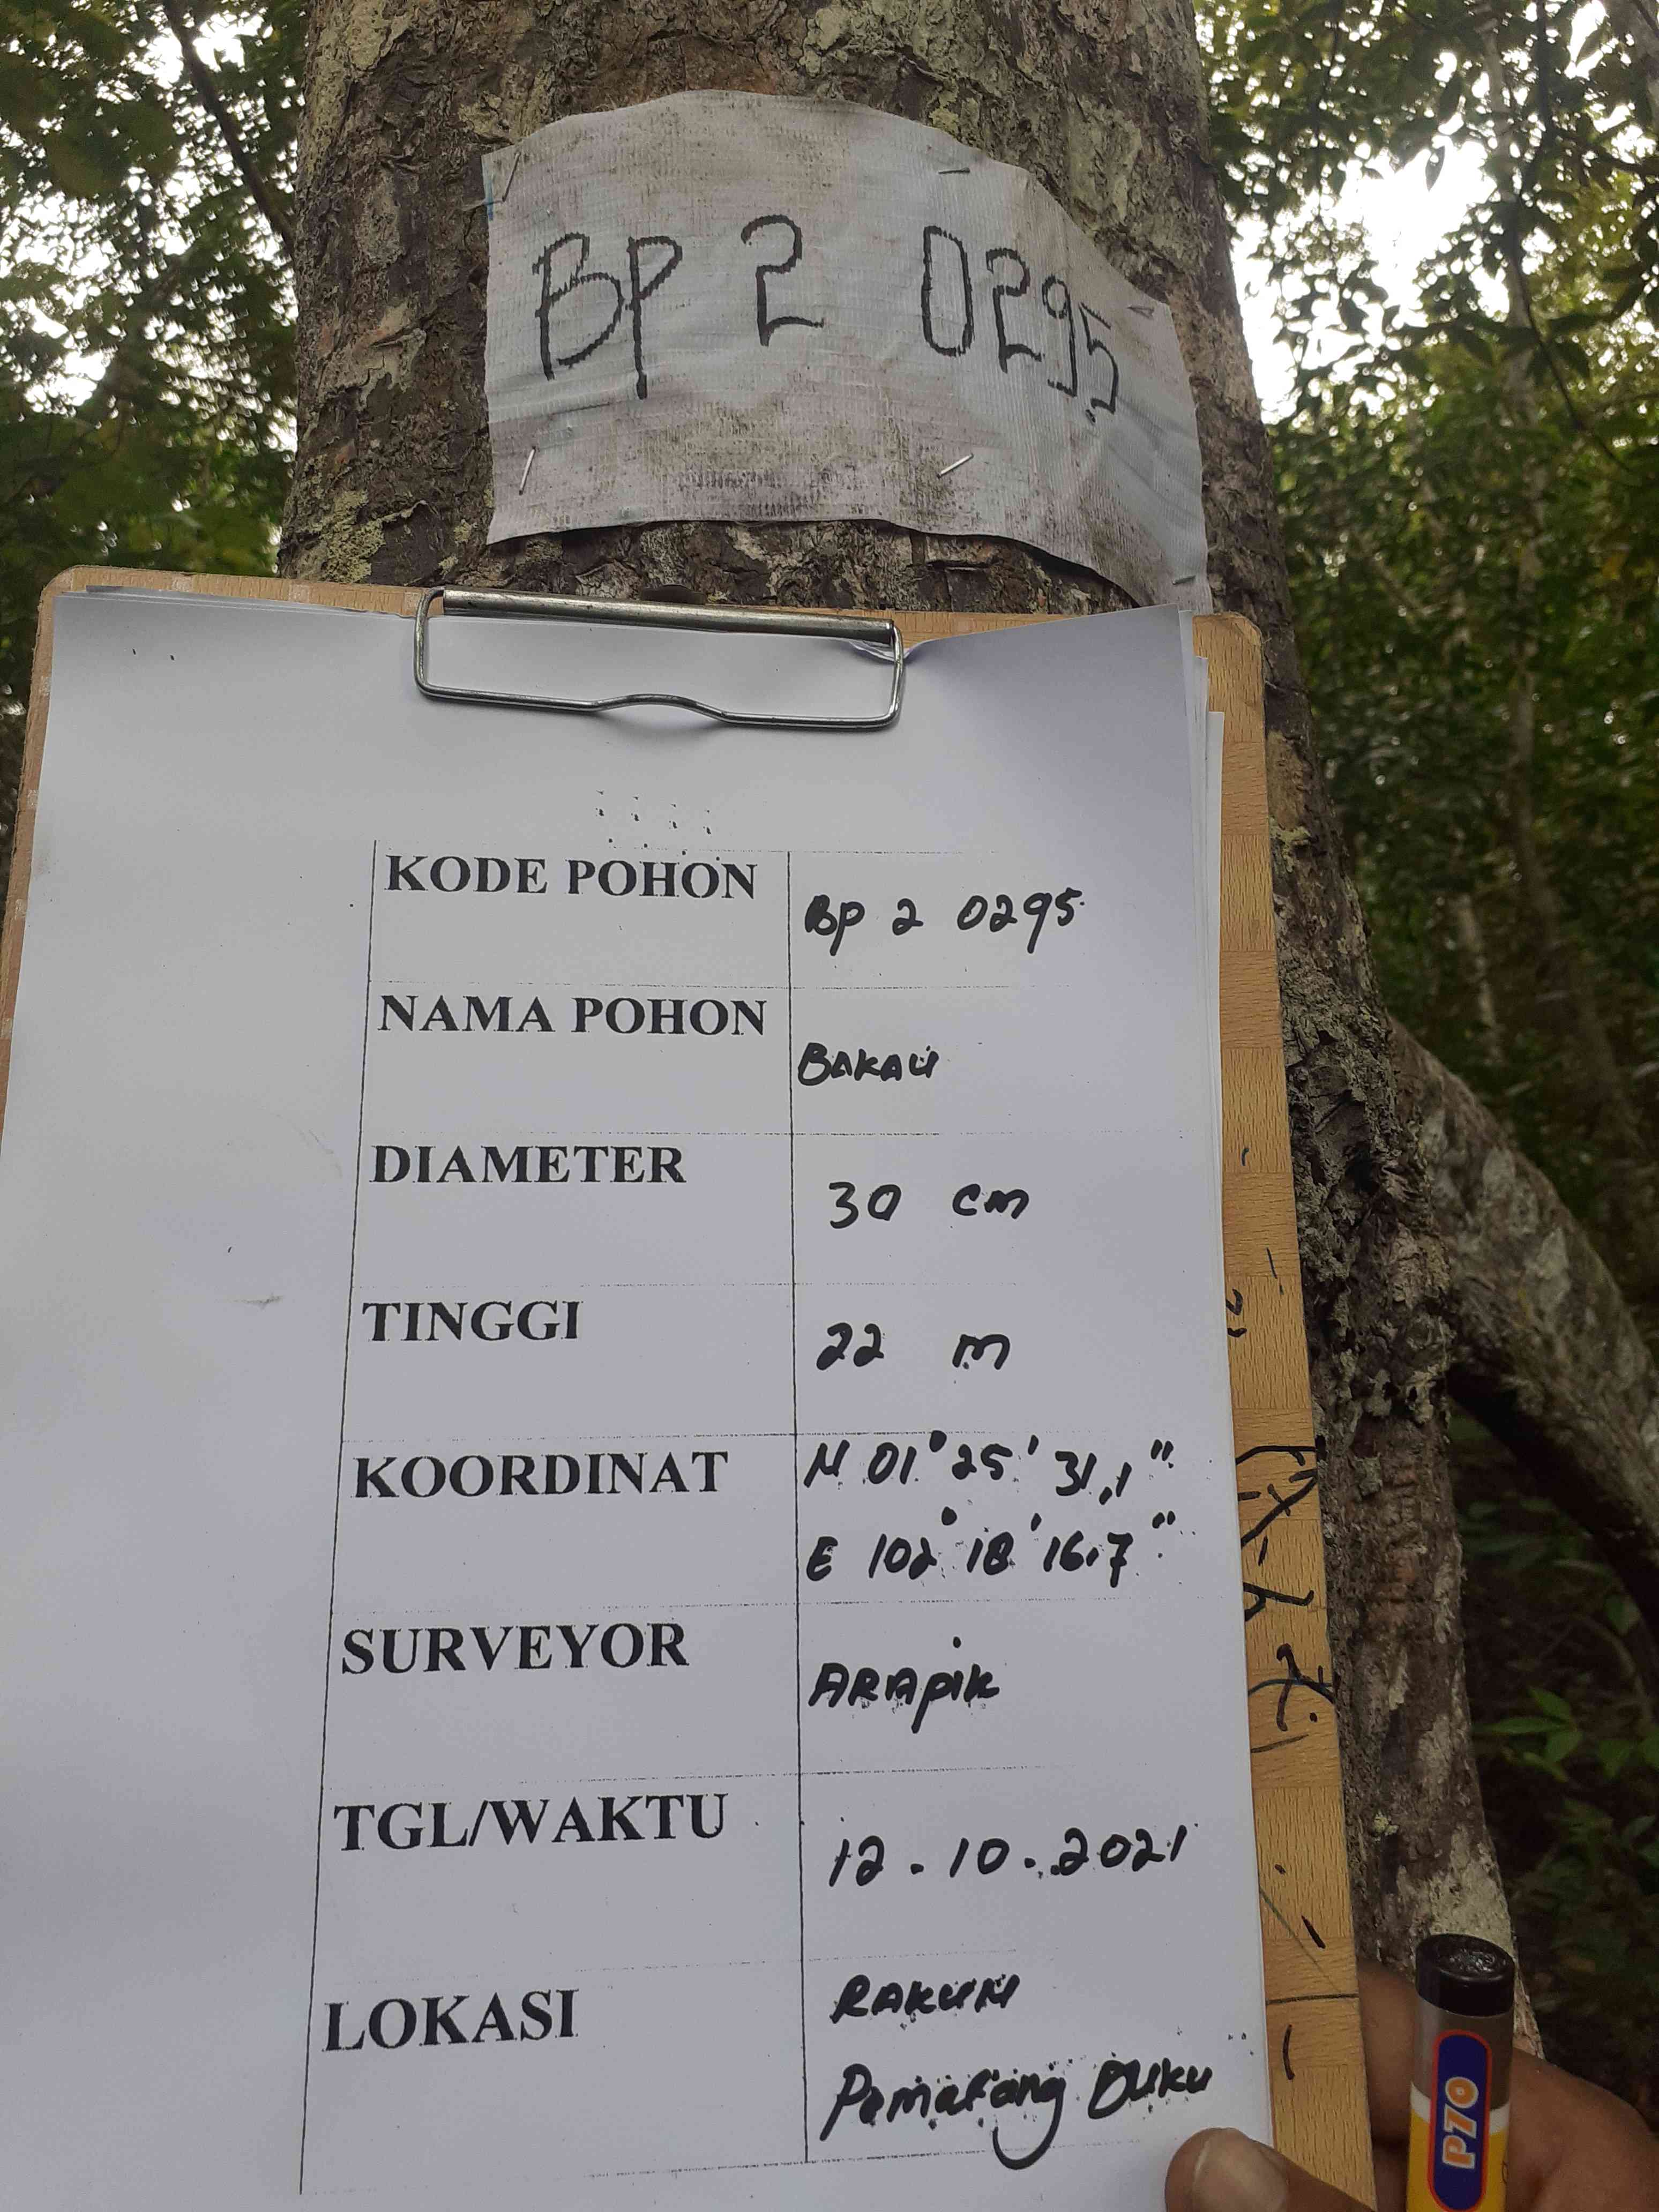 BP 2 0295
KODE POHON
BP 2 0295
NAMA POHON
BAKAU
DIAMETER
30 cm
TINGGI
22 m
KOORDINAT
N 01° 25' 31,1"
E 102° 18' 16.7"
SURVEYOR
ARAPIK
TGL/WAKTU
12.10.2021
LOKASI
RAKUN
Pematang Duku
P70